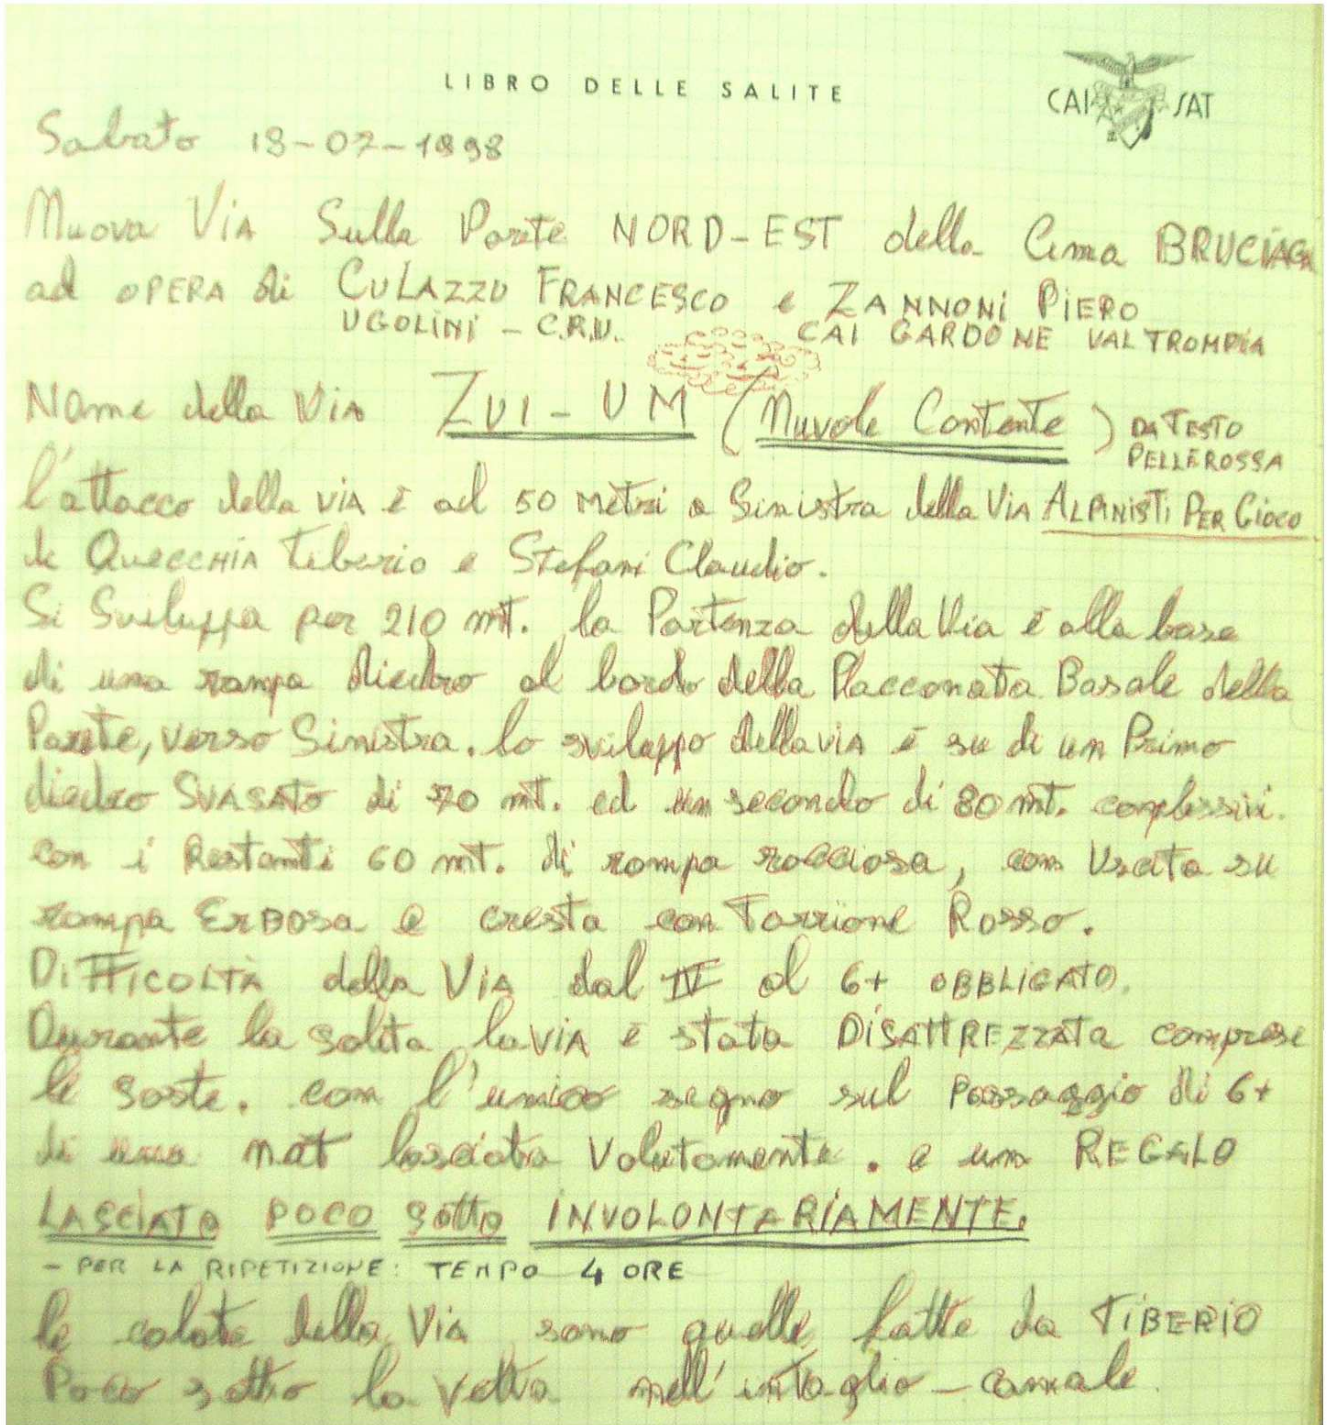 LIBRO DELLE SALITE
CAI SAT
Sabato 18-07-1998
Nuova Via Sulla Parete NORD-EST della Cima BRUCIAGA
ad OPERA di CULAZZU FRANCESCO e ZANNONI PIERO
UGOLINI - C.R.U. CAI GARDONE VALTROMPIA
NOme della Via ZUI-UM (Nuvole Contente) DA TESTO
PELLEROSSA
l'attacco della via è ad 50 metri a Sinistra della Via ALPINISTI PER GIOCO
di QUECCHIA Tiberio e Stefani Claudio.
Si Sviluppa per 210 mt. la Partenza della Via è alla base
di una rampa diedro al bordo della Placconata Basale della
Parete, verso Sinistra. lo sviluppo della via è su di un Primo
diedro SVASATO di 70 mt. ed un secondo di 80 mt. complessivi.
con i Restanti 60 mt. di rampa rocciosa, con Uscita su
rampa ERBOSA e cresta con Torrione Rosso.
DIFFICOLTÀ della Via dal IV al 6+ OBBLIGATO.
Durante la salita la via è stata DISATTREZZATA comprese
le soste. con l'unico segno sul Passaggio di 6+
di una nat lasciata Volutamente. e un REGALO
LASCIATO POCO sotto INVOLONTARIAMENTE.
- PER LA RIPETIZIONE: TEMPO 4 ORE
le calate della Via sono quelle fatte da TIBERIO
Poco sotto la vetta nell'intaglio-canale.